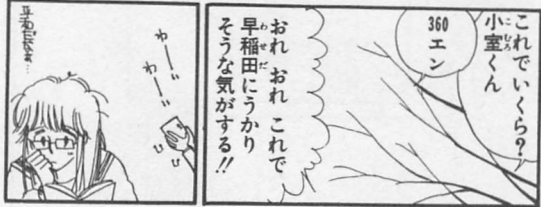 これでいくら?
小室くん
360
エン
おれ おれ これで
早稲田にうかり
そうな気がする!!
わーい
わーい
平和だなぁ…